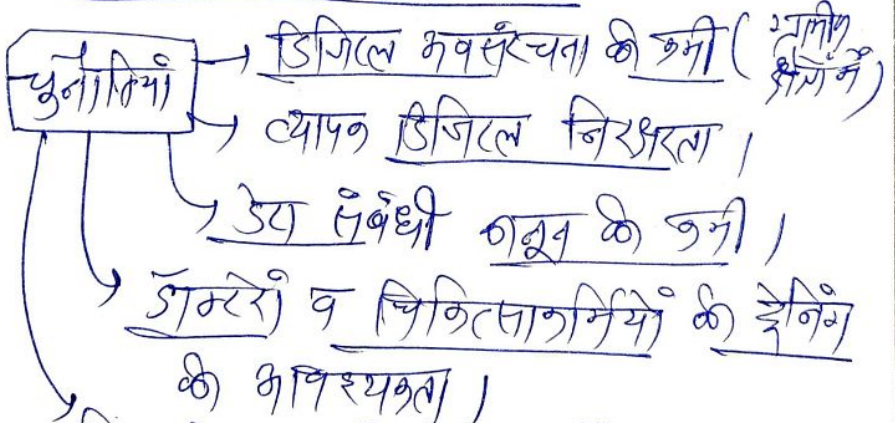 चुनौतियां → डिजिटल अवसंरचना की कमी ( ग्रामीण
क्षेत्रों में)
→ व्यापक डिजिटल निरक्षरता ।
→ डेटा संबंधी कानून की कमी ।
→ डॉक्टरों व चिकित्साकर्मियों की ट्रेनिंग
की आवश्यकता ।